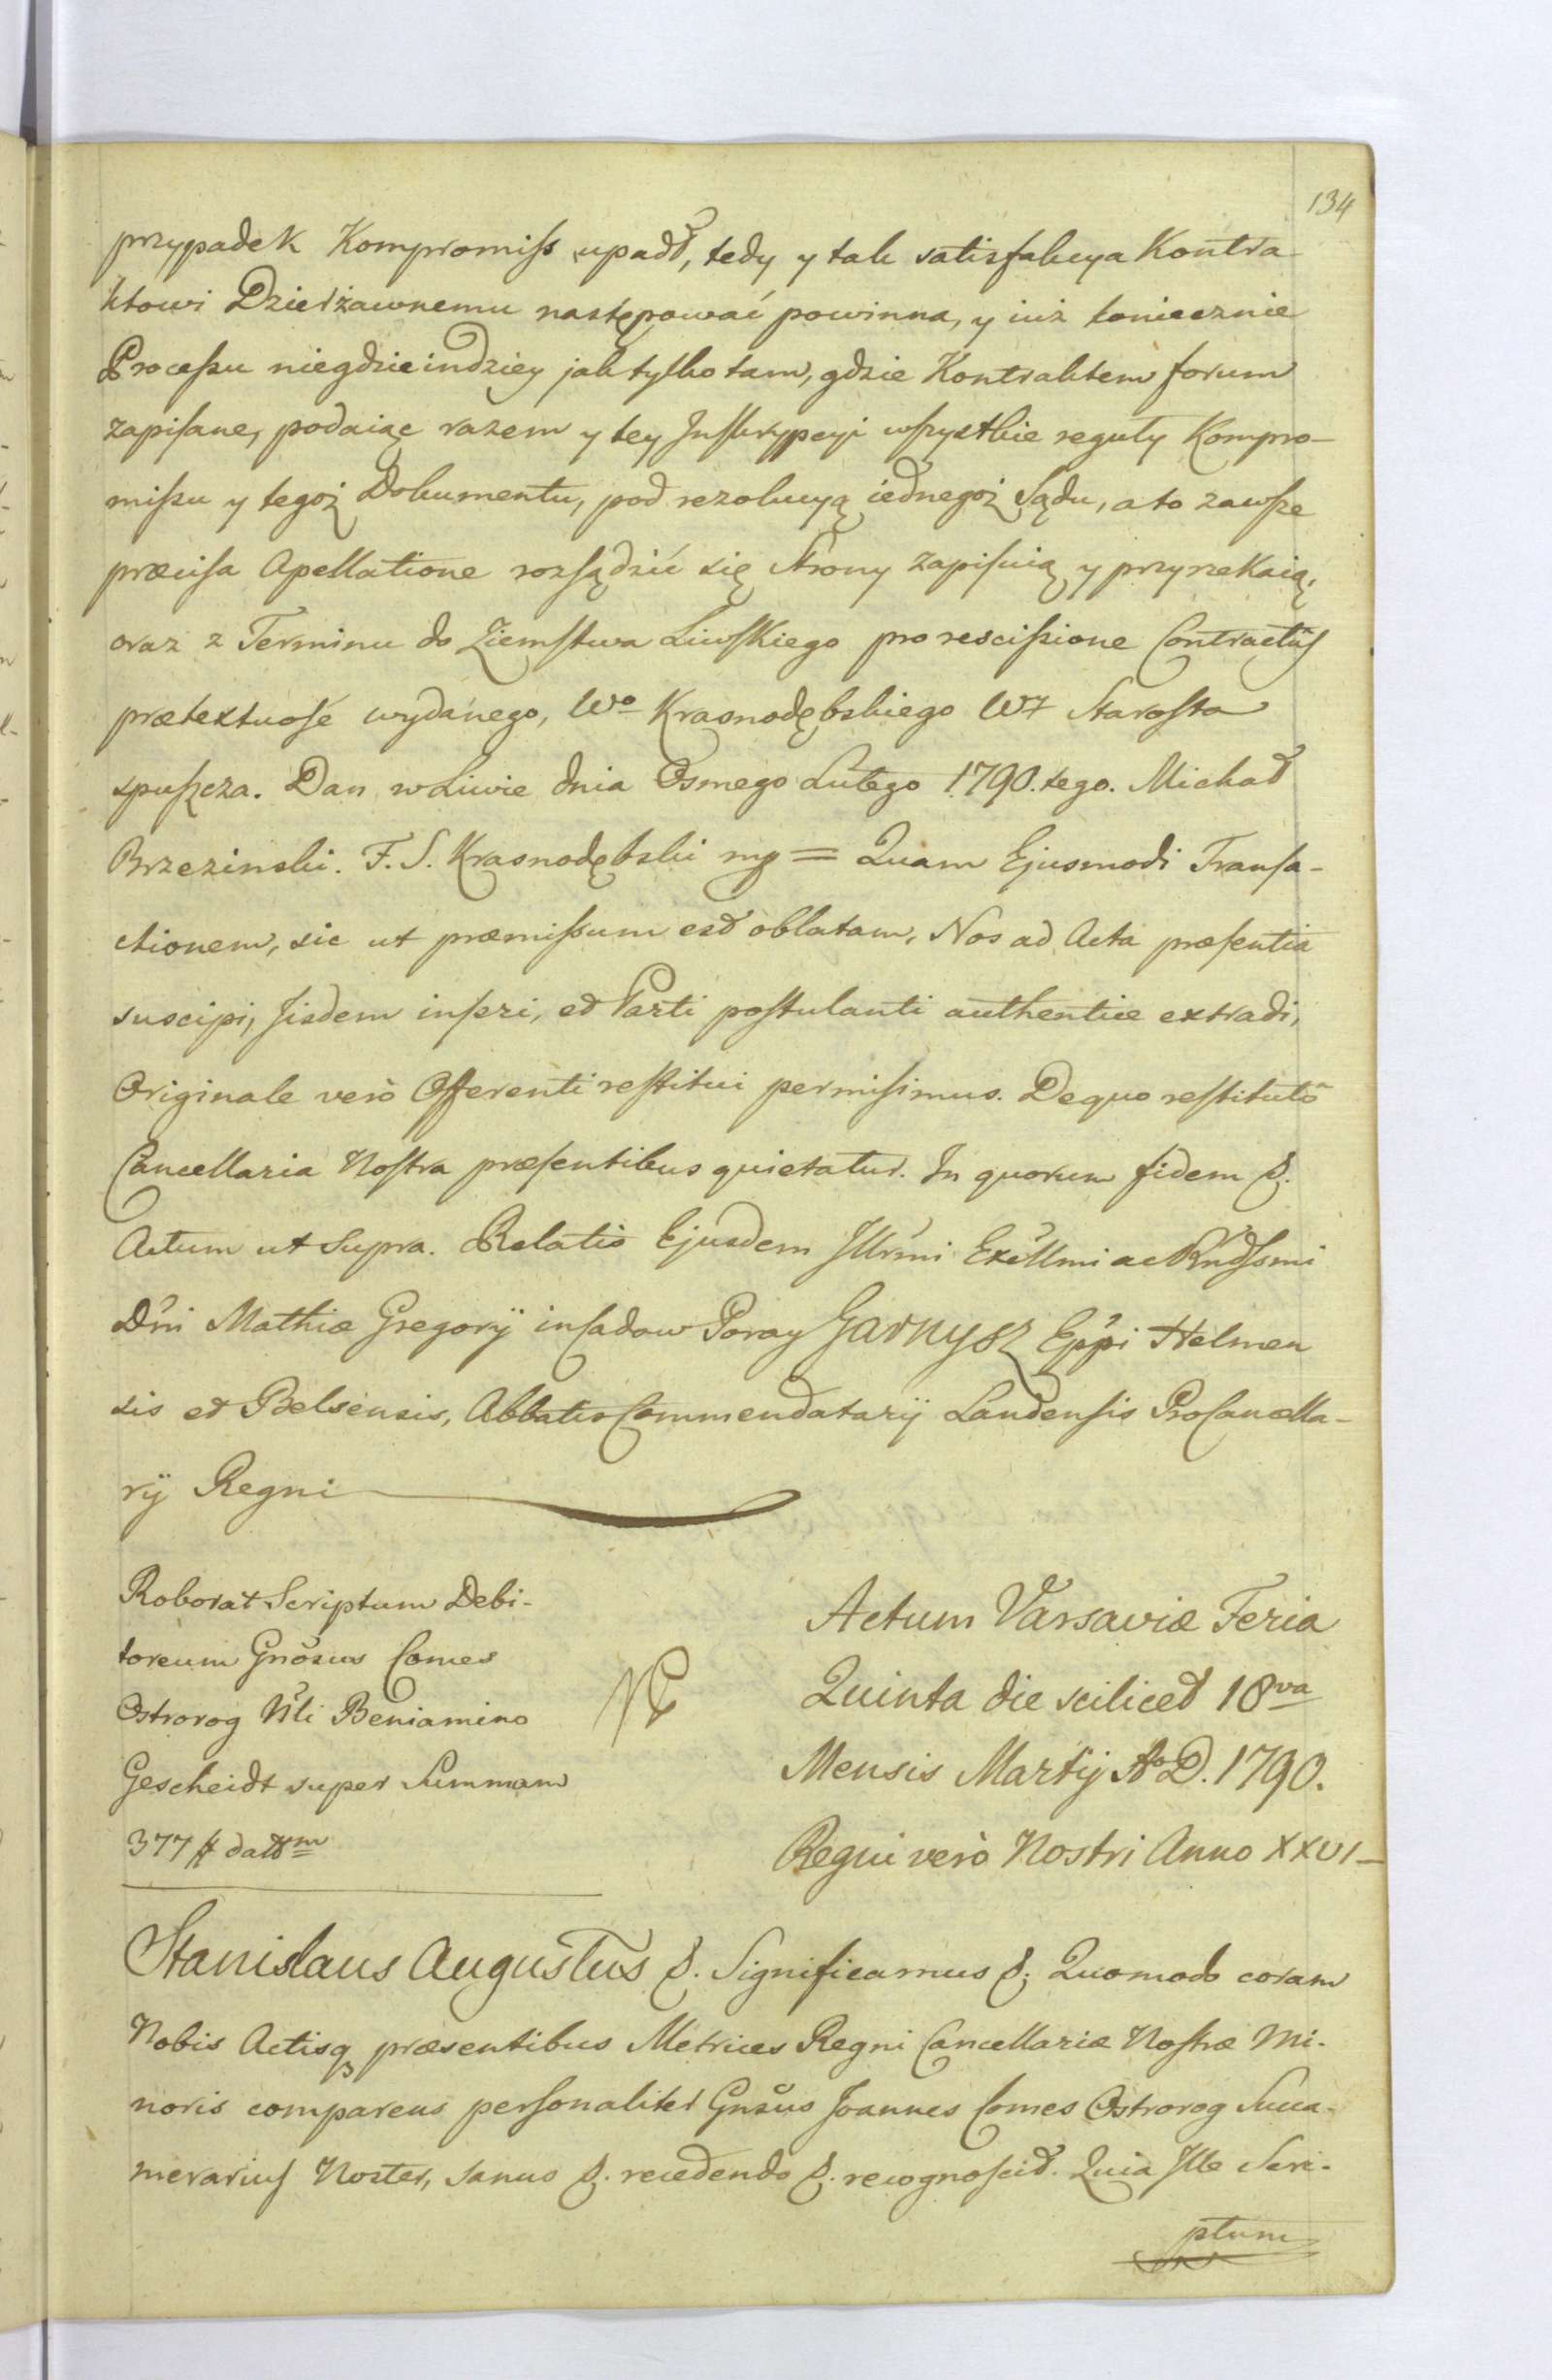 134
przypadek Kompromiſs upadł, tedy y tak satisfakcya Kontra-
ktowi Dzierżawnemu następować powinna, y iuż koniecznie
Proceſsu niegdzieindziey jak tylko tam, gdzie Kontraktem forum
zapiſane, podaiąc razem y tey Inſkrypcyi wſzystkie reguły Kompro-
miſsu y tegoż Dokumentu, pod rezolucyą iednegoż Sądu, a to zawſze
præciſa Apellatione rozſądzić się Strony zapiſuią y przyrzekaią,
oraz z Terminu do Ziemſtwa Liwſkiego pro resciſsione Contractûſ
prætextuosé wydanego, Wo Krasnodębskiego WJ Staroſta
spuſzcza. Dan w Liwie dnia Osmego Lutego 1790.tego. Michał
Brzezinski. F. S. Krasnodębski mp = Quam Ejusmodi Tranſa-
ctionem, sic ut præmiſsum est oblatam, Nos ad Acta præſentia
suscipi, Iisdem inſeri, et Parti poſtulanti authentice extradi,
Originale verò Offerenti reſtitui permiſimus. De quo reſtitutô
Cancellaria Noſtra præſentibus quietatur. In quorum fidem &.
Actum ut Supra. Relatio Ejusdem Illrmi Excllmi ac Rndſsmi
Dni Mathiæ Gregorÿ in Sadow Poray Garnysz Eppi Helmen
sis et Belsensis, Abbatis Commendatarÿ Landenſis ProCancella-
rÿ Regni
Roborat Scriptum Debi-
toreum Gnosus Comes
Ostrorog Nli Beniamino
Gescheidt super Summam
377 # datam
Actum Varsaviæ Feria
Quinta die scilicet 18va
Mensis Martÿ Ao D. 1790.
Regni verò Nostri Anno XXVI
Stanislaus Augustus &. Significamus &. Quomodo coram
Nobis Actisq præsentibus Metrices Regni Cancellariæ Noſtræ Mi-
noris comparens perſonaliter Gnsus Joannes Comes Ostrorog Succa-
merariuſ Noster, sanus &. recedendo &. recognoſcit. Quia Ille Scri-
ptum